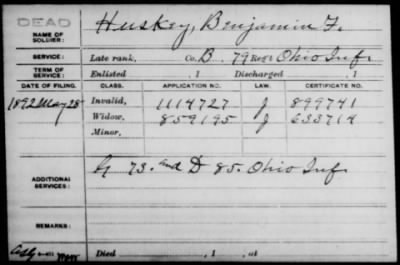 DEAD
NAME OF SOLDIER: Huskey, Benjamin F.
SERVICE: Late rank, Co. B. 79 Reg't Ohio Inf.
TERM OF SERVICE: Enlisted , 1 Discharged , 1
DATE OF FILING. CLASS. APPLICATION NO. LAW. CERTIFICATE NO.
1892 May 28 Invalid, 1114727 J 899741
Widow, 859195 J 633714
Minor,
ADDITIONAL SERVICES: G 73. and D 85. Ohio Inf.
REMARKS:
Died , 1 , at